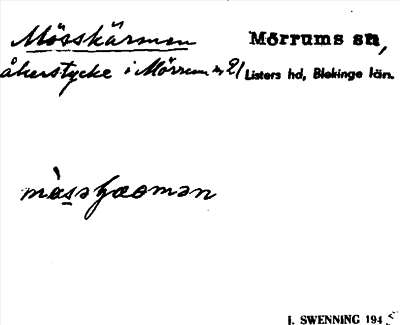 Mösskärmen
Mörrums sn,
åkerstycke i Mörrum nr 21
Listers hd, Blekinge län.
I. SWENNING 1945